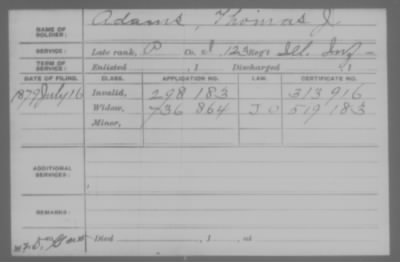 NAME OF SOLDIER: Adams, Thomas J.
SERVICE: Late rank, P Co. I, 123 Reg't Ill. Inf
TERM OF SERVICE: Enlisted , 1 Discharged , 1
DATE OF FILING. CLASS. APPLICATION NO. LAW. CERTIFICATE NO.
1879 July 16 Invalid, 298 183 313 916
Widow, 736 864 519 183
Minor,
ADDITIONAL SERVICES:
REMARKS:
Died , 1 , at